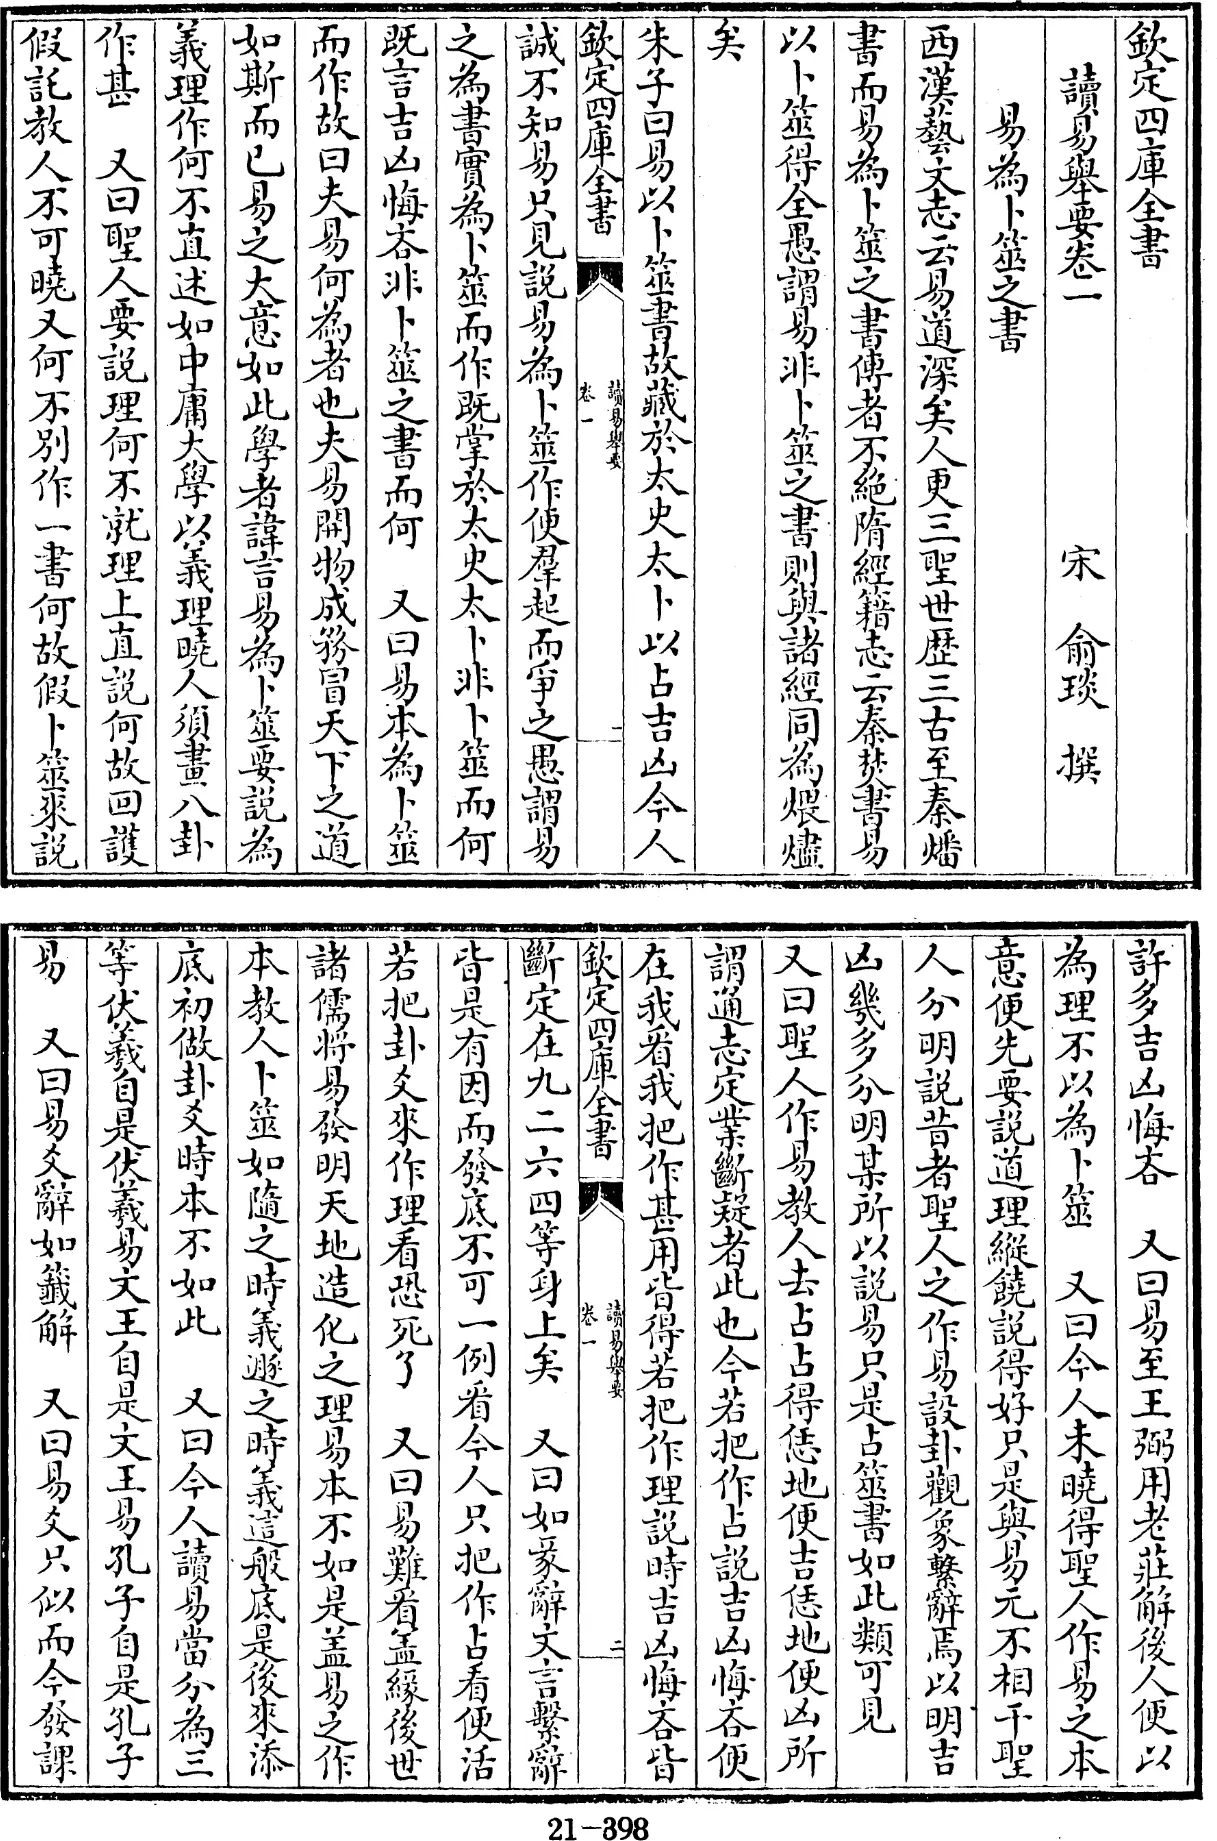 欽定四庫全書
讀易舉要卷一
宋 俞琰 撰
易為卜筮之書
西漢藝文志云易道深矣人更三聖世歴三古至秦燔
書而易為卜筮之書傳者不絶隋經籍志云秦焚書易
以卜筮得全愚謂易非卜筮之書則與諸經同為煨燼
矣
朱子曰易以卜筮書故藏於太史太卜以占吉凶今人
欽定四庫全書
讀易舉要
卷一
一
誠不知易只見説易為卜筮作便羣起而爭之愚謂易
之為書實為卜筮而作既掌於太史太卜非卜筮而何
既言吉凶悔吝非卜筮之書而何 又曰易本為卜筮
而作故曰夫易何為者也夫易開物成務冒天下之道
如斯而已易之大意如此學者諱言易為卜筮要説為
義理作何不直述如中庸大學以義理曉人須畫八卦
作甚 又曰聖人要説理何不就理上直説何故回護
假託教人不可曉又何不别作一書何故假卜筮來説
許多吉凶悔吝 又曰易至王弼用老莊解後人便以
為理不以為卜筮 又曰今人未曉得聖人作易之本
意便先要説道理縱饒説得好只是與易元不相干聖
人分明説昔者聖人之作易設卦觀象繫辭焉以明吉
凶幾多分明某所以説易只是占筮書如此類可見
又曰聖人作易教人去占占得恁地便吉恁地便凶所
謂通志定業斷疑者此也今若把作占説吉凶悔吝便
在我看我把作甚用皆得若把作理説時吉凶悔吝皆
欽定四庫全書
讀易舉要
卷一
二
斷定在九二六四等身上矣 又曰如彖辭文言繫辭
皆是有因而發底不可一例看今人只把作占看便活
若把卦爻來作理看恐死了 又曰易難看盖緣後世
諸儒將易發明天地造化之理易本不如是盖易之作
本教人卜筮如隨之時義遯之時義這般底是後來添
底初做卦爻時本不如此 又曰今人讀易當分為三
等伏羲自是伏羲易文王自是文王易孔子自是孔子
易 又曰易爻辭如籖解 又曰易爻只似而今發課
21-398